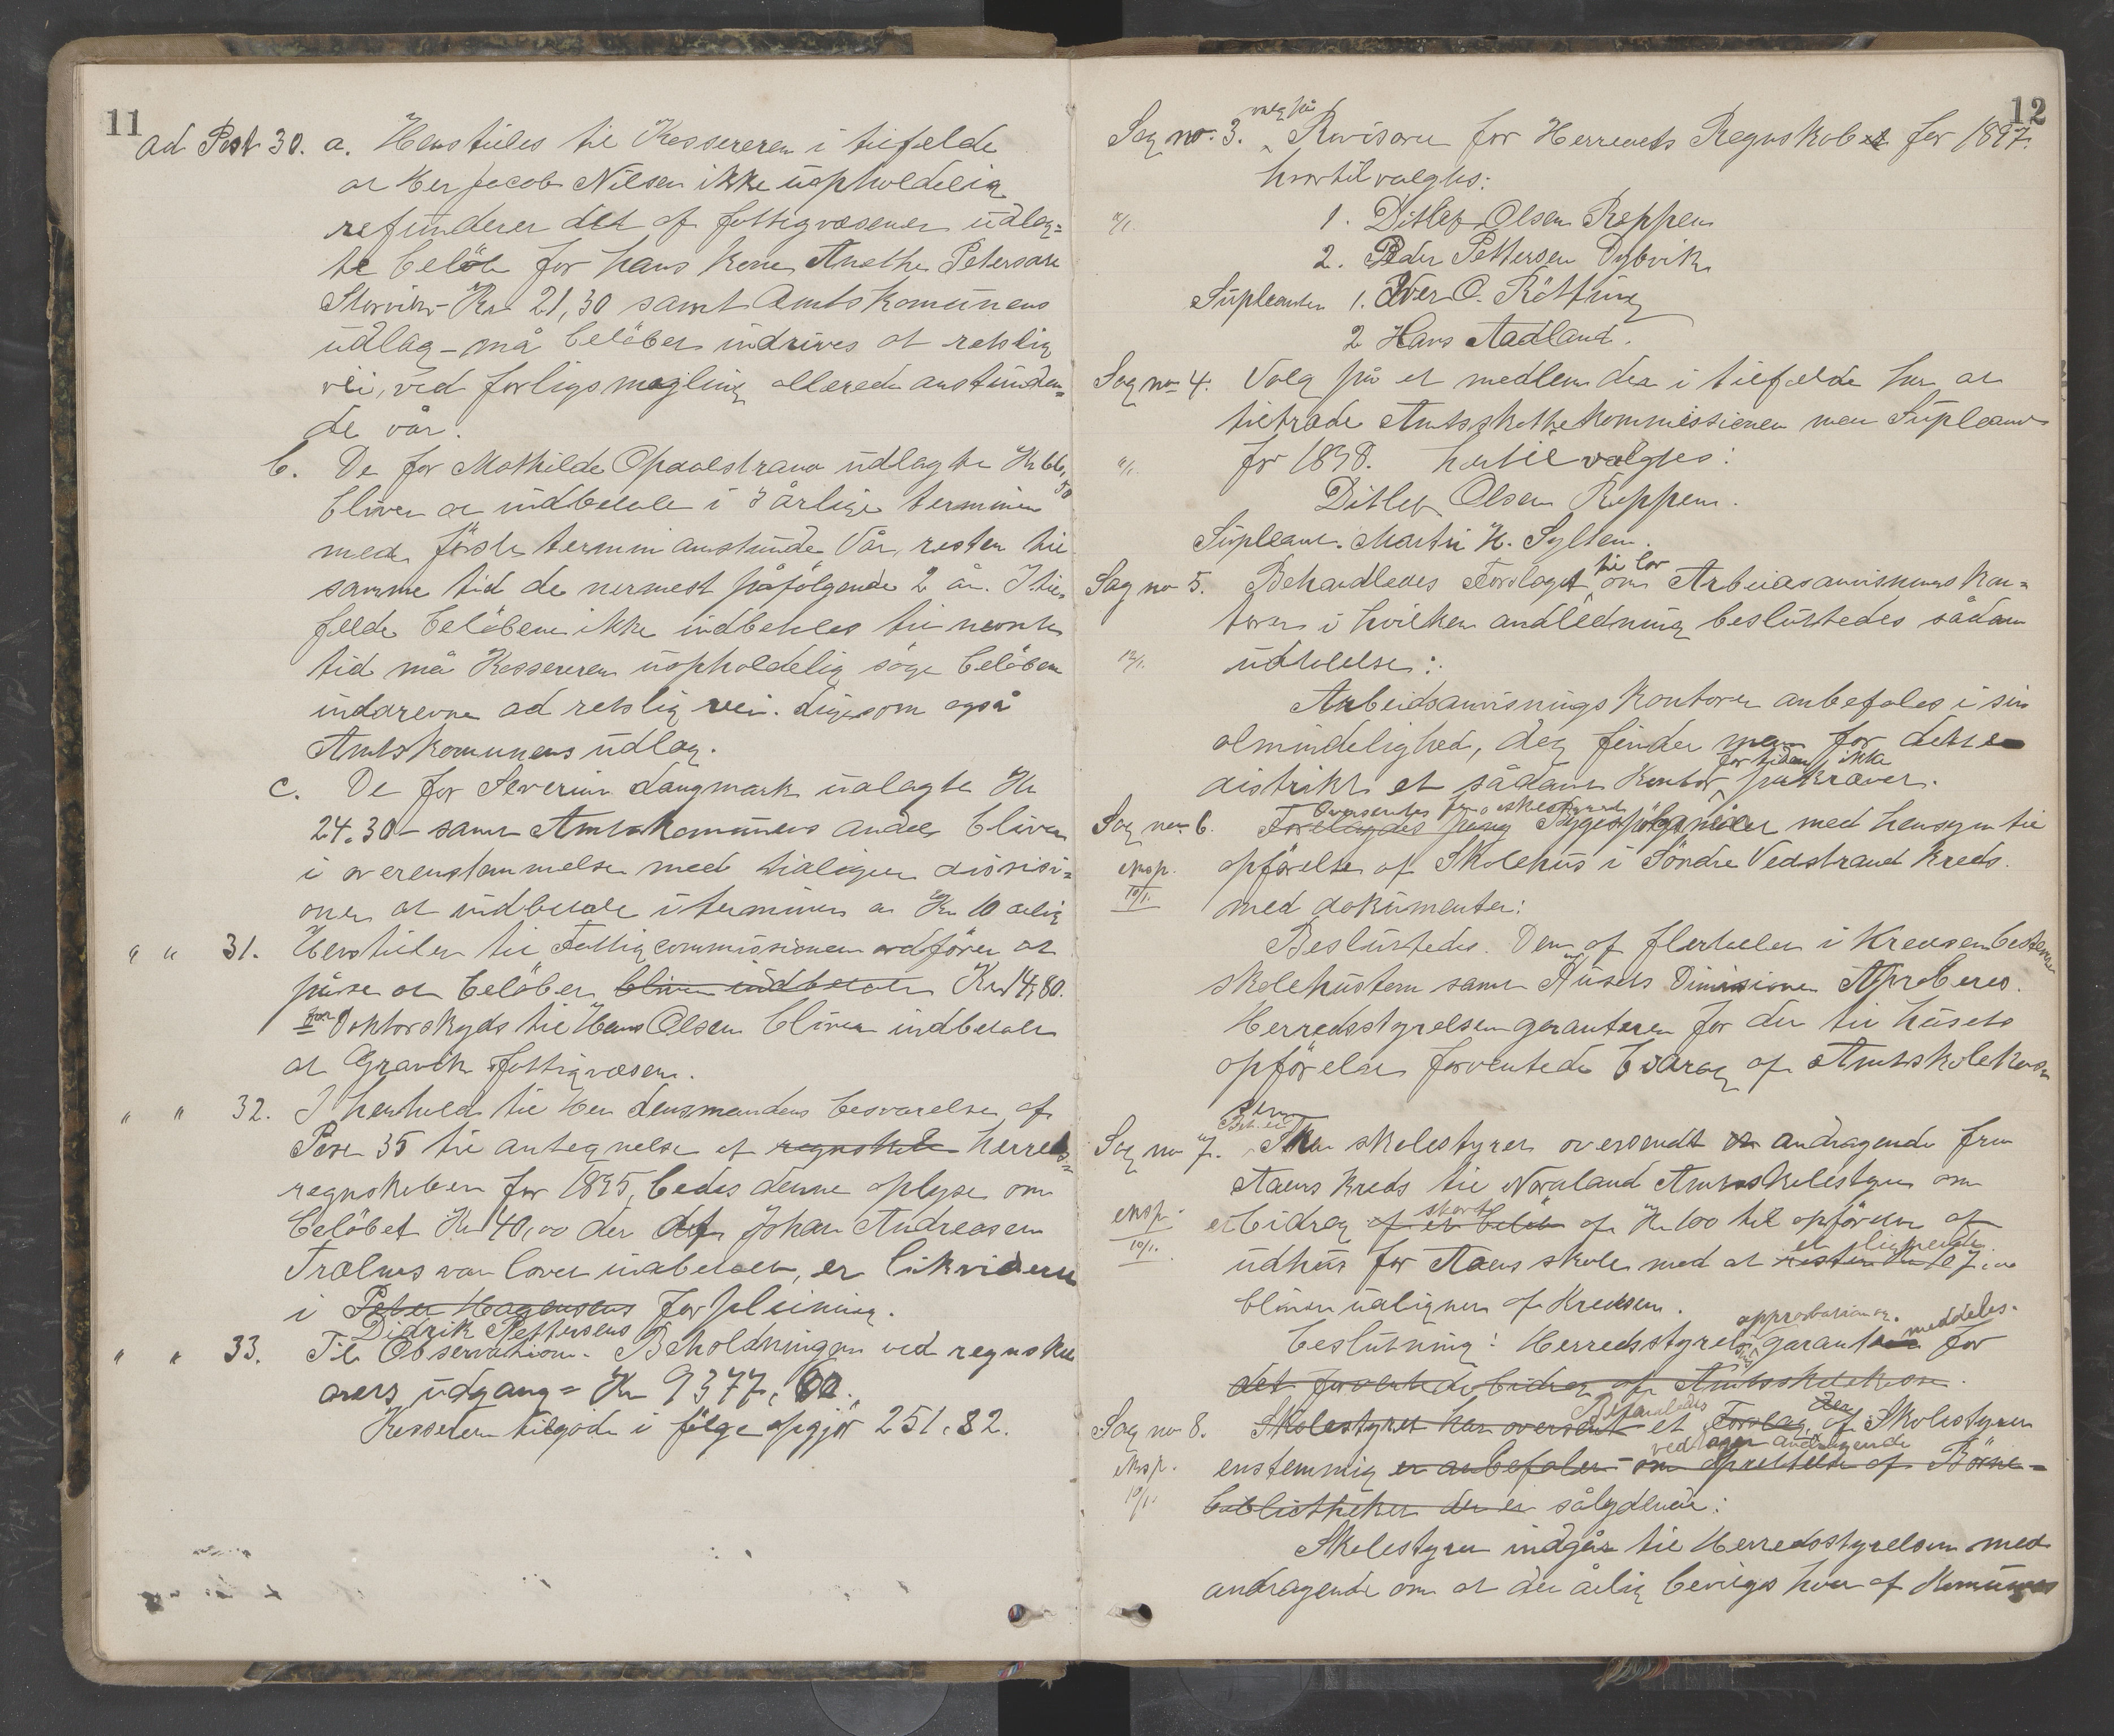 11
ad Post 30. a. Henstilles til Kassereren i tilfælde
at Her Jacob Nilsen ikke uopholdelig
refunderer det af fattigvæsenet udlag=
te beløb for hans kone Anethe Petersdtr
Storvik – Kr 21,30 samt Amtskomunens
udlag – må beløbet indrives at retslig
vei, ved forligsmægling allerede anstunden=
de vår.
b. De for Mathilde Opdalstrand udlagte Kr 66,
50
bliver at indbetale i 3 årlige terminer
med første termin anstunde Vår, resten til
samme tid de nermest påfølgende 2 år. I til=
fælde beløbene ikke indbetales til nevnte
tid må Kassereren uopholdelig søge beløbene
inddrevne ad retslig vei. Ligesom også
Amtskomunens udlag.
c. De for Severin Langmark udlagte Kr
24.30 – samt Amtskomunens andel bliver
i overenstemmelse med tidligere
at indbetale i terminer a Kr 10 årlig
" " 31. Henstilles til Fattigcommissionens ordfører at
påse at beløbet bliver indbetalt Kr 14,80.
for Doktorskyds til Hans Olsen bliver indbetalt
at Gravik Fattigvæsen.
" " 32. I henhold til Her Lensmandens besvarelse af
Post 35 til antegnelse af regnskab herreds=
regnskabet for 1895, bedes denne oplyse om
beløbet Kr 40,00 der af Johan Andreasen
Trælnes var lovet indbetalt, er likvideret
i Peter Haagensens forpleining.
Didrik Pettersens
" " 33. Til Observation. Beholdningen ved regnskabs
årets udgang = Kr 9377,60.
Kasseren tilgode i følge opgjør 251.82.
12
valg på
Sag no. 3. Revisorer for Herredets Regnskaber for 1897.
hvortil valgtes:
1. Ditlef Olsen Reppen
2. Peder Pettersen Dybvik
Supleanter 1. Iver O. Røtting
2 Hans Aadland.
Sag no 4. Valg på et medlem der i tilfælde har at
tiltræde Amtsskattekommissionen med Supleant
for 1898. hertil valgtes:
Ditlef Olsen Reppen.
Supleant. Martin H. Sylten.
til lov
Sag no 5. Behandledes Forslaget om Arbeidsanvisningskon=
torer i hvilken andledning besluttedes sådan
12/1.
udtalelse:
Arbeidsanvisningskontorer anbefales i sin
almindelighed, dog finder man for dette
for tiden ikke
distrikt et sådant Kontor påkrævet.
Oversendtes fra skolestyret
Sag no. 6. Forelagdes med hensyn til
eksp. opførelse af Skolehus i Søndre Vedstrand Kreds.
10/1. med dokumenter:
Besluttedes. Den af flertallet i Kredsen bestemte
skolehustomt samt Husets Dimisioner Aproberes.
Herredsstyrelsen garanterer for det til husets
opførelse forventede bidrag af Amtsskolekassen
Sag no 7. Fra skolestyret oversendt andragende fra
Aaens Kreds til Nordland Amtsskolestyre om
eksp. et bidrag af Kr 100 til opførelse af
10/1. udhus for Aaens skole med at
bliver udlignet af Kredsen.
approbation og. meddeles.
beslutning: Herredsstyrets garanti for
det forventede bidrag af Amtsskolekassen.
Behandledes
Sag no 8. Skolestyret har oversendt et Forslag af Skolestyret
vedtagen andragende
eksp. enstemmig er anbefalet – om oprettelse af Børne=
10/1. bibliotheker der er sålydende:
Skolestyret indgår til Herredsstyrelsen med
andragende om at der årlig beviliges hver af Komunens